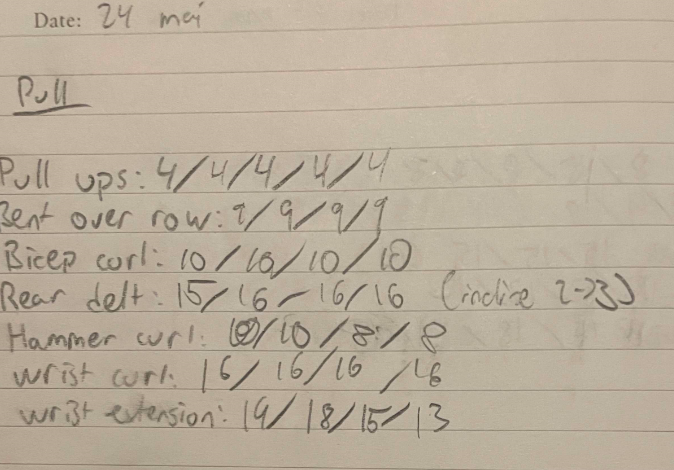 Date: 24 mei
Pull
Pull ups: 4/4/4/4/4
Bent over row: 9/9/9/9
Bicep curl: 10/10/10/10
Rear delt: 15/16-16/16 (incline 2->3)
Hammer curl: 10/10/8/8
wrist curl: 16/16/16/16
wrist extension: 19/18/15/13